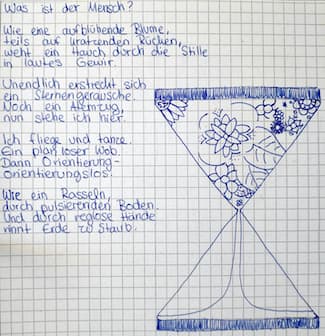 Was ist der Mensch?
Wie eine aufblühende Blume,
teils auf kratzenden Rücken,
weht ein Hauch durch die Stille
in lautes Gewirr.
Unendlich erstreckt sich
ein Sternengeräusche.
Noch ein Atemzug,
nun stehe ich hier.
Ich fliege und tanze.
Ein planloser
Dann Orientierung-
orientierungslos.
Wie ein Rasseln,
durch pulsierenden Boden.
Und durch reglose Hände
rinnt Erde zu Staub.